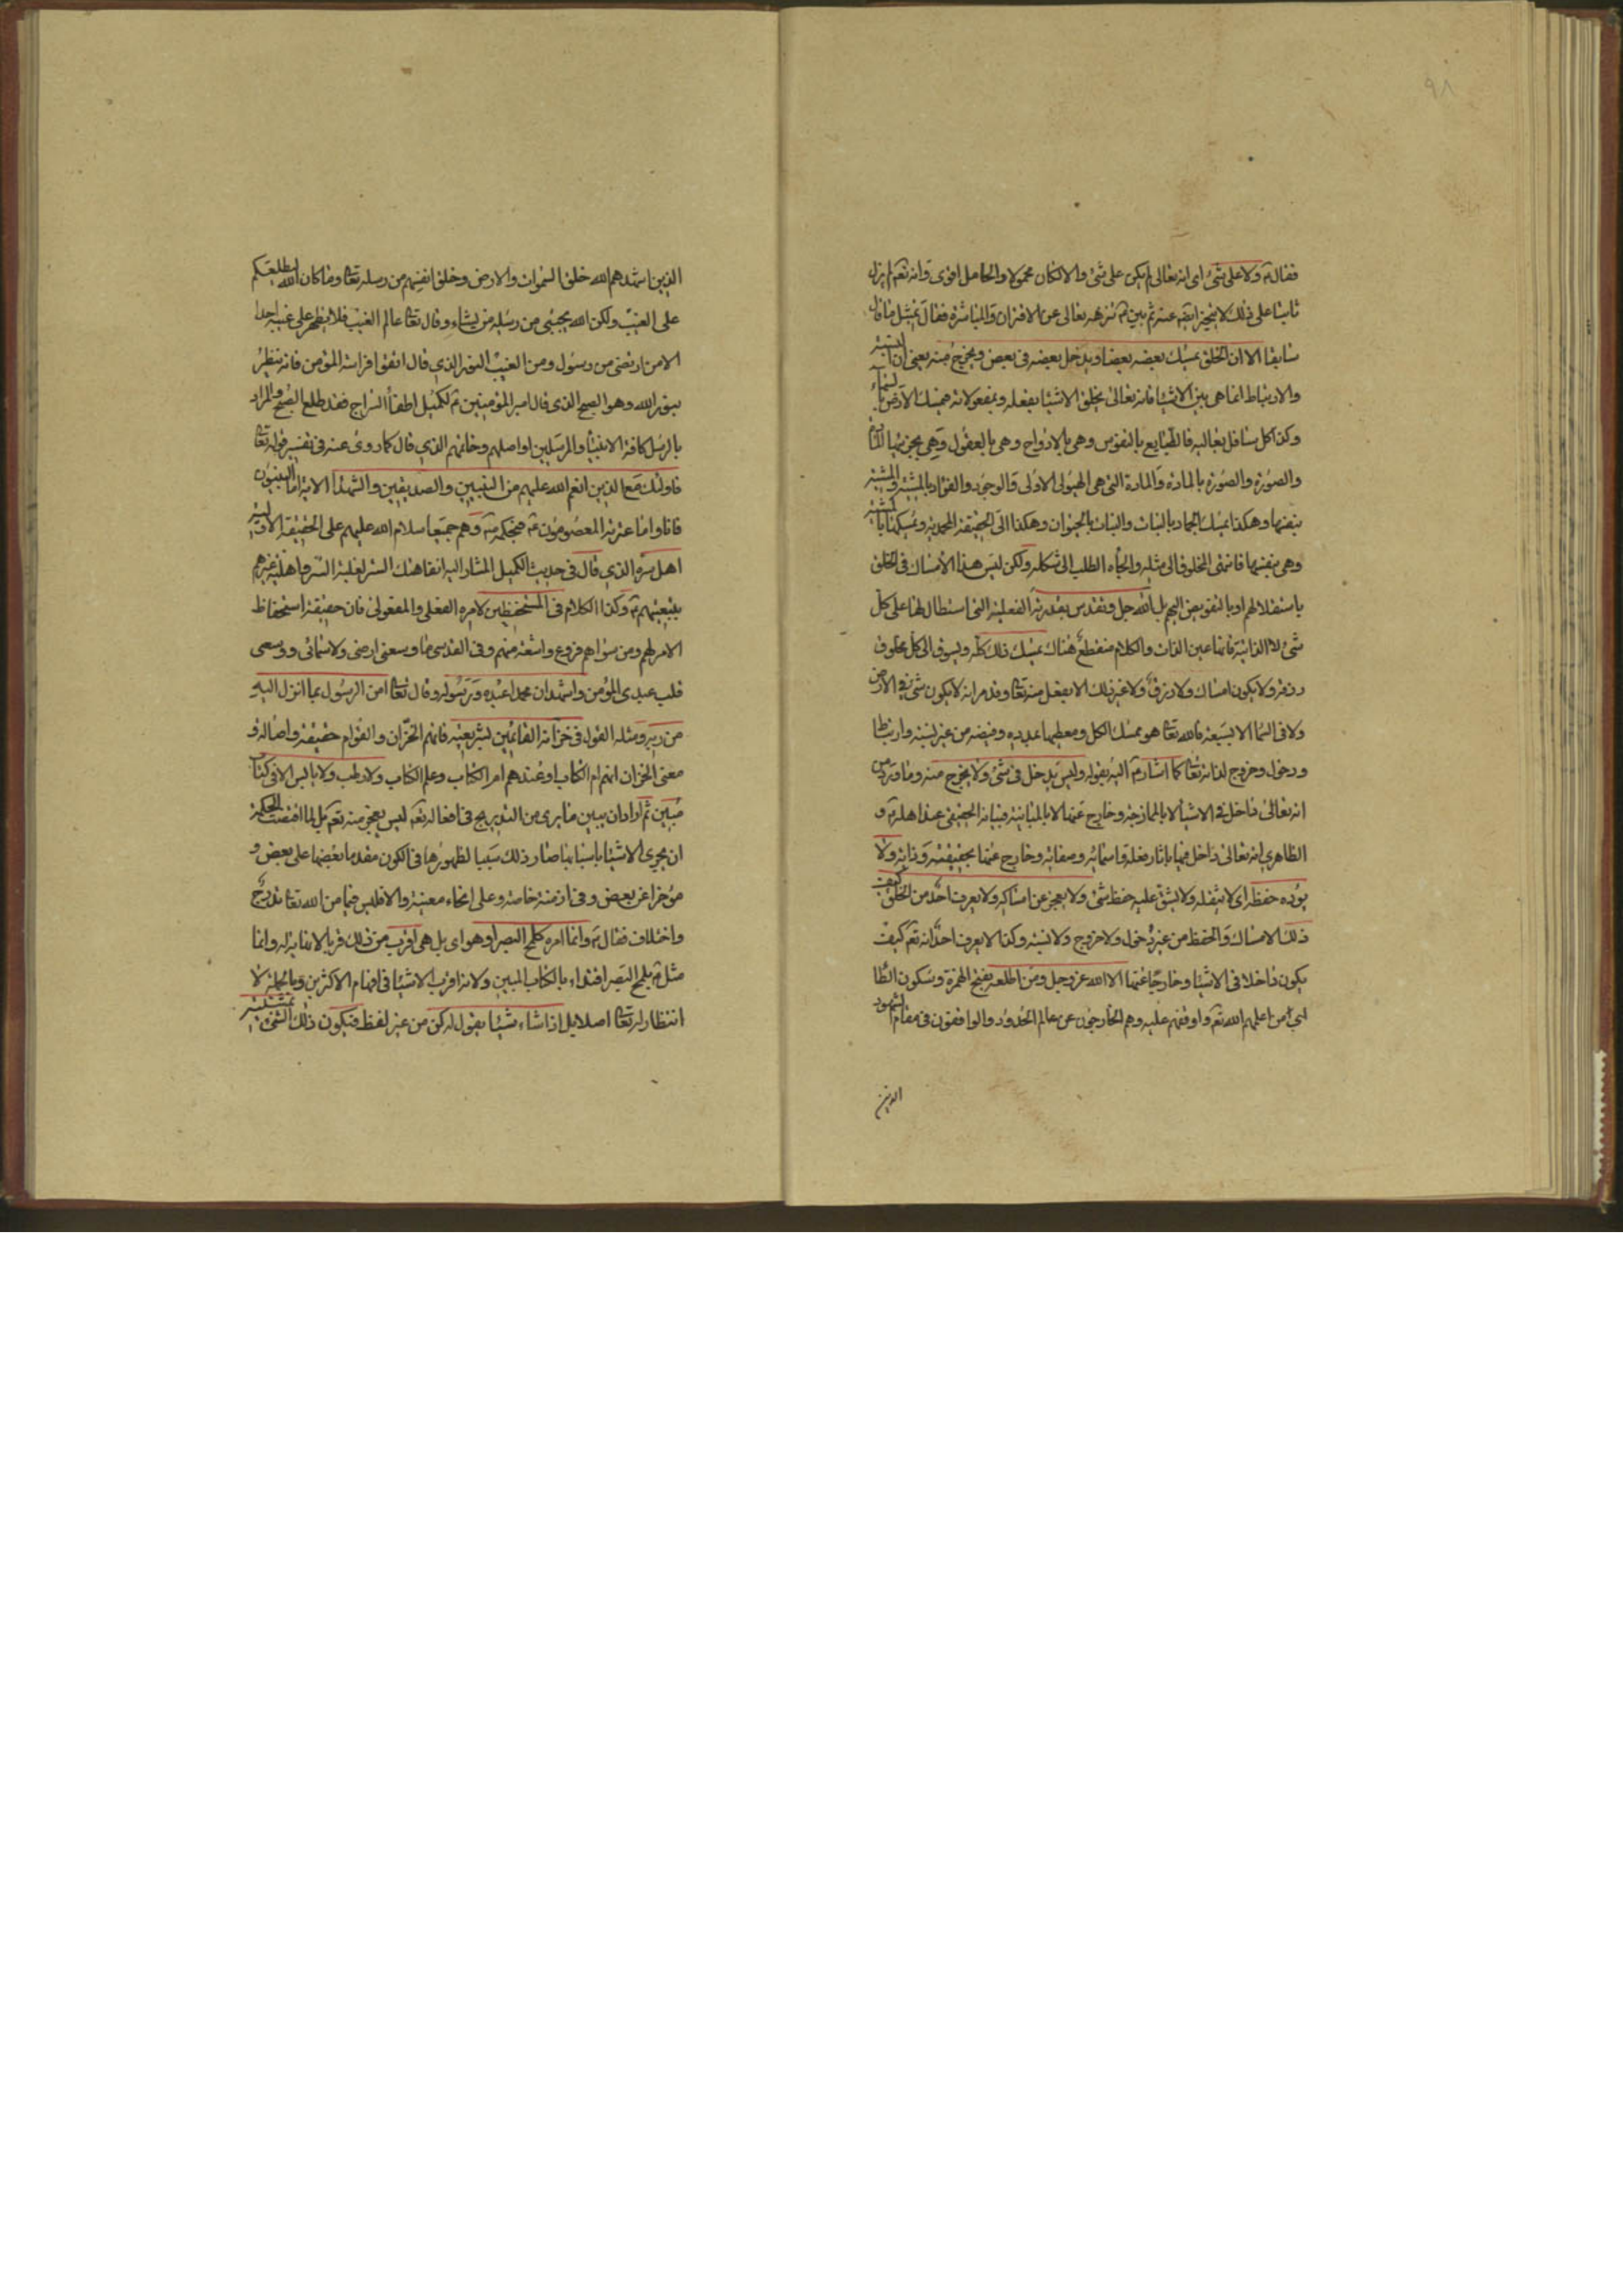 ٩٨
فقال ع ولا على شئ اى انه تعالى لم يكن على شئ والا لكان محمولا والحامل اقوى وانه تعم لم يزل
ثابتا على ذلك لا يتجيز ابته عنه ثم بين ع تنزهه تعالى عن الاقتران والمباشرة فقال بمثل ما قال
سابقا الا ان الخلق يمسك بعضه بعضا ويدخل بعضه فى بعض ويخرج منه يعنى ان النسبة
والارتباط انما هى بين الاشيا فانه تعالى يخلق الاشيا بفعله وبمفعولاته فيمسك الارض بالسماء
وكذا كل سافل بعاليه فالطبايع بالنفوس وهى بالارواح وهى بالعقول وهى
والصورة والصورة بالمادة والمادة التى هى الهيولى الاولى والوجود والفؤاد بالمشية والمشية
بنفسها وهكذا يمسك الجماد بالنبات والنبات بالحيوان وهكذا الى الحقيقة المحمدية ويمسكها بالمشية
وهى بنفسها فانتهى المخلوق الى مثله والجأه الطلب الى شكله ولكن ليس هذا الامساك فى الخلق
باستقلالهم او بالتفويض اليهم بل الله جل وتقدس بقدرته الفعلية التى استطال بها على كل
شئ لا الذاتية فانها عين الذات والكلام منقطع هناك يمسك ذلك كله ويسوق الى كل مخلوق
رزقه ولا يكون امساك ولا رزق ولا غير ذلك الا بفعل منه تعا وقد مر انه لا يكون شئ فى الارض
ولا فى السما الا بسبعة فالله تعا هو ممسك الكل ومعطيها بمدده وفيضه من غير نسبة وارتباط
ودخول وخروج لذاته تعا كما اشار ع اليه بقوله وليس يدخل فى شئ ولا يخرج منه وما ورد من
انه تعالى داخل فى الاشيا لا بالممازجة وخارج عنها لا بالمباينة فبيانه الحقيقى عند اهله ع و
الظاهرى انه تعالى داخل فيها باثار فعله واسمائه وصفاته وخارج عنها بحقيقته وذاته ولا
يؤده حفظه اى لا يثقله ولا يشق عليه حفظ شئ ولا يعجز عن امساكه ولا يعرف احد من الخلق كيف
ذلك الامساك والحفظ من غير دخول ولا خروج ولا نسبة وكذا لا يعرف احد انه تعم كيف
يكون داخلا فى الاشيا وخارجا عنها الا الله عز وجل ومن اطلعه بفتح الهمزة وسكون الطا
اى من اعلمهم الله تعم واوقفهم عليه وهم الخارجون عن عالم الحدود والواقفون فى مقام الشهود
الذين
الذين اشهدهم الله خلق السموات والارض وخلق انفسهم من رسله تعا وما كان الله ليطلعكم
على الغيب ولكن الله يجتبى من رسله من يشاء وقال تعا عالم الغيب فلا يظهر على غيبه احدا
الا من ارتضى من رسول ومن الغيب النور الذى قال اتقوا فراسة المؤمن فانه ينظر
بنور الله وهو الصبح الذى قال امير المؤمنين ع لكميل اطفأ السراج فقد طلع الصبح والمراد
بالرسل كافة الانبيا والمرسلين او اصلهم وخاتمهم الذى قال كما روى عنه فى تفسير قوله تعا
فاولئك مع الذين انعم الله عليهم من النبيين والصديقين والشهدا الاية اما النبيون
فانا واما عترته المعصومون ع فبحكمه ص وهم جميعا سلام الله عليهم على الحقيقة الاولية
اهل سره الذى قال فى حديث الكميل المشار اليه انفا هتك الستر لغلبة السر واهلية غيرهم
بتبعيتهم ع وكذا الكلام فى المستحفظين لامره الفعلى والمفعولى فان حقيقة استحفاظ
الامر لهم ومن سواهم فروع واشعة منهم وفى القدسى ما وسعنى ارضى ولا سمائى ووسعنى
قلب عبدى المؤمن واشهد ان محمدا عبده ورسوله وقال تعا امن الرسول بما انزل اليه
من ربه ومثله القول فى خزانه القائمين بشريعته فانهم الخزان والقوام حقيقة واصالة و
معنى الخزان انهم ام الكتاب او عندهم ام الكتاب وعلم الكتاب ولا رطب ولا يابس الا فى كتاب
مبين ثم اراد ان يبين ما يرى من التدريج فى افعاله تعم ليس بعجز منه تعم بل لما اقتضت الحكمة
ان يجرى الاشيا باسبابها صار ذلك سببا لظهورها فى الكون مقدما بعضها على بعض و
مؤخرا عن بعض وفى ازمنة خاصة وعلى انحاء معينة والا فليس فيها من الله تعا تدريج
واختلاف فقال ع وانما امره كلمح البصر او هو اى بل هى اقرب من ذلك قربا لا نهاية له وانما
مثل ع بلمح البصر اقتداء بالكتاب المبين ولانه اقرب الاشيا فى افهام الاكثرين وبالجملة لا
انتظار له تعا اصلا بل اذا شاء شيئا يقول له كن من غير لفظ فيكون ذلك الشئ بمشيته